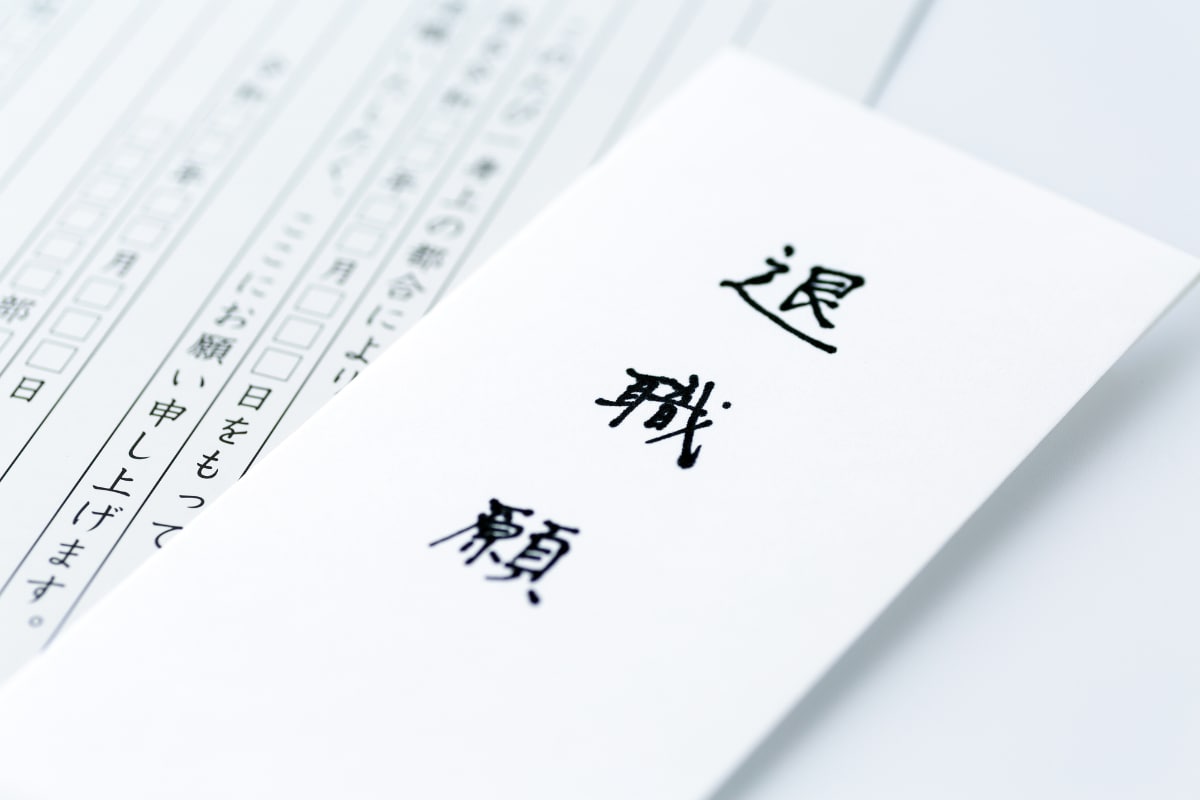 退職願
このたび一身上の都合により
年□□月□□□日をもって
いたしたく、ここにお願い申し上げます。
年□□月□□□日
部